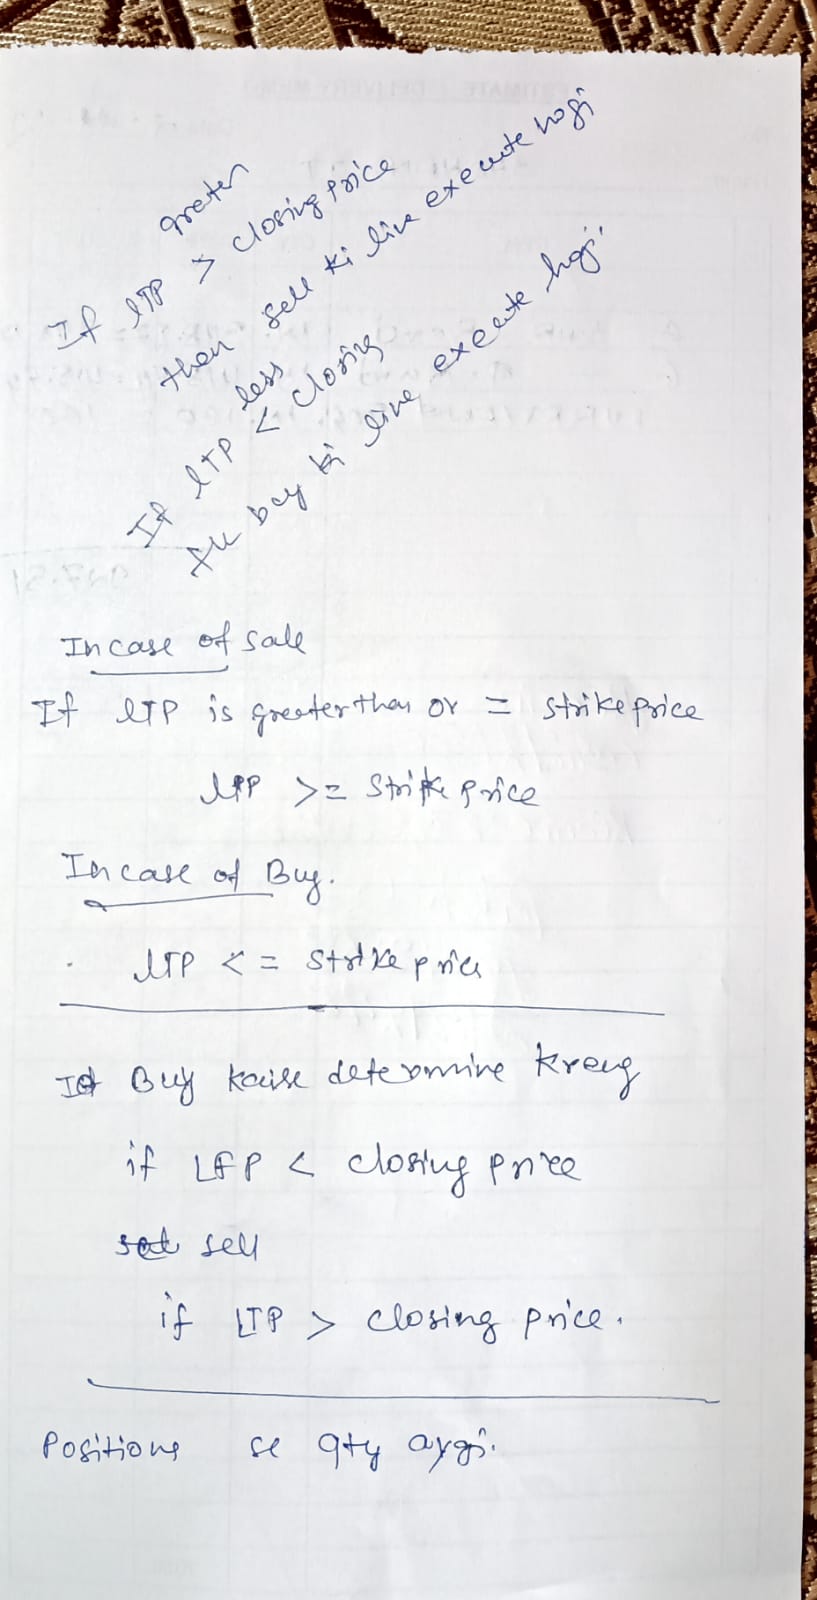 greater
If LTP > closing price
then sell ki line execute hogi
less
If LTP < closing
buy ki line execute hogi
In case of sale
If LTP is greater than or = strike price
LTP >= Strike price
In case of Buy.
LTP <= strike price
Buy kaise determine kreng
if LTP < closing price
sell
if LTP > closing price.
Positions se qty aygi.